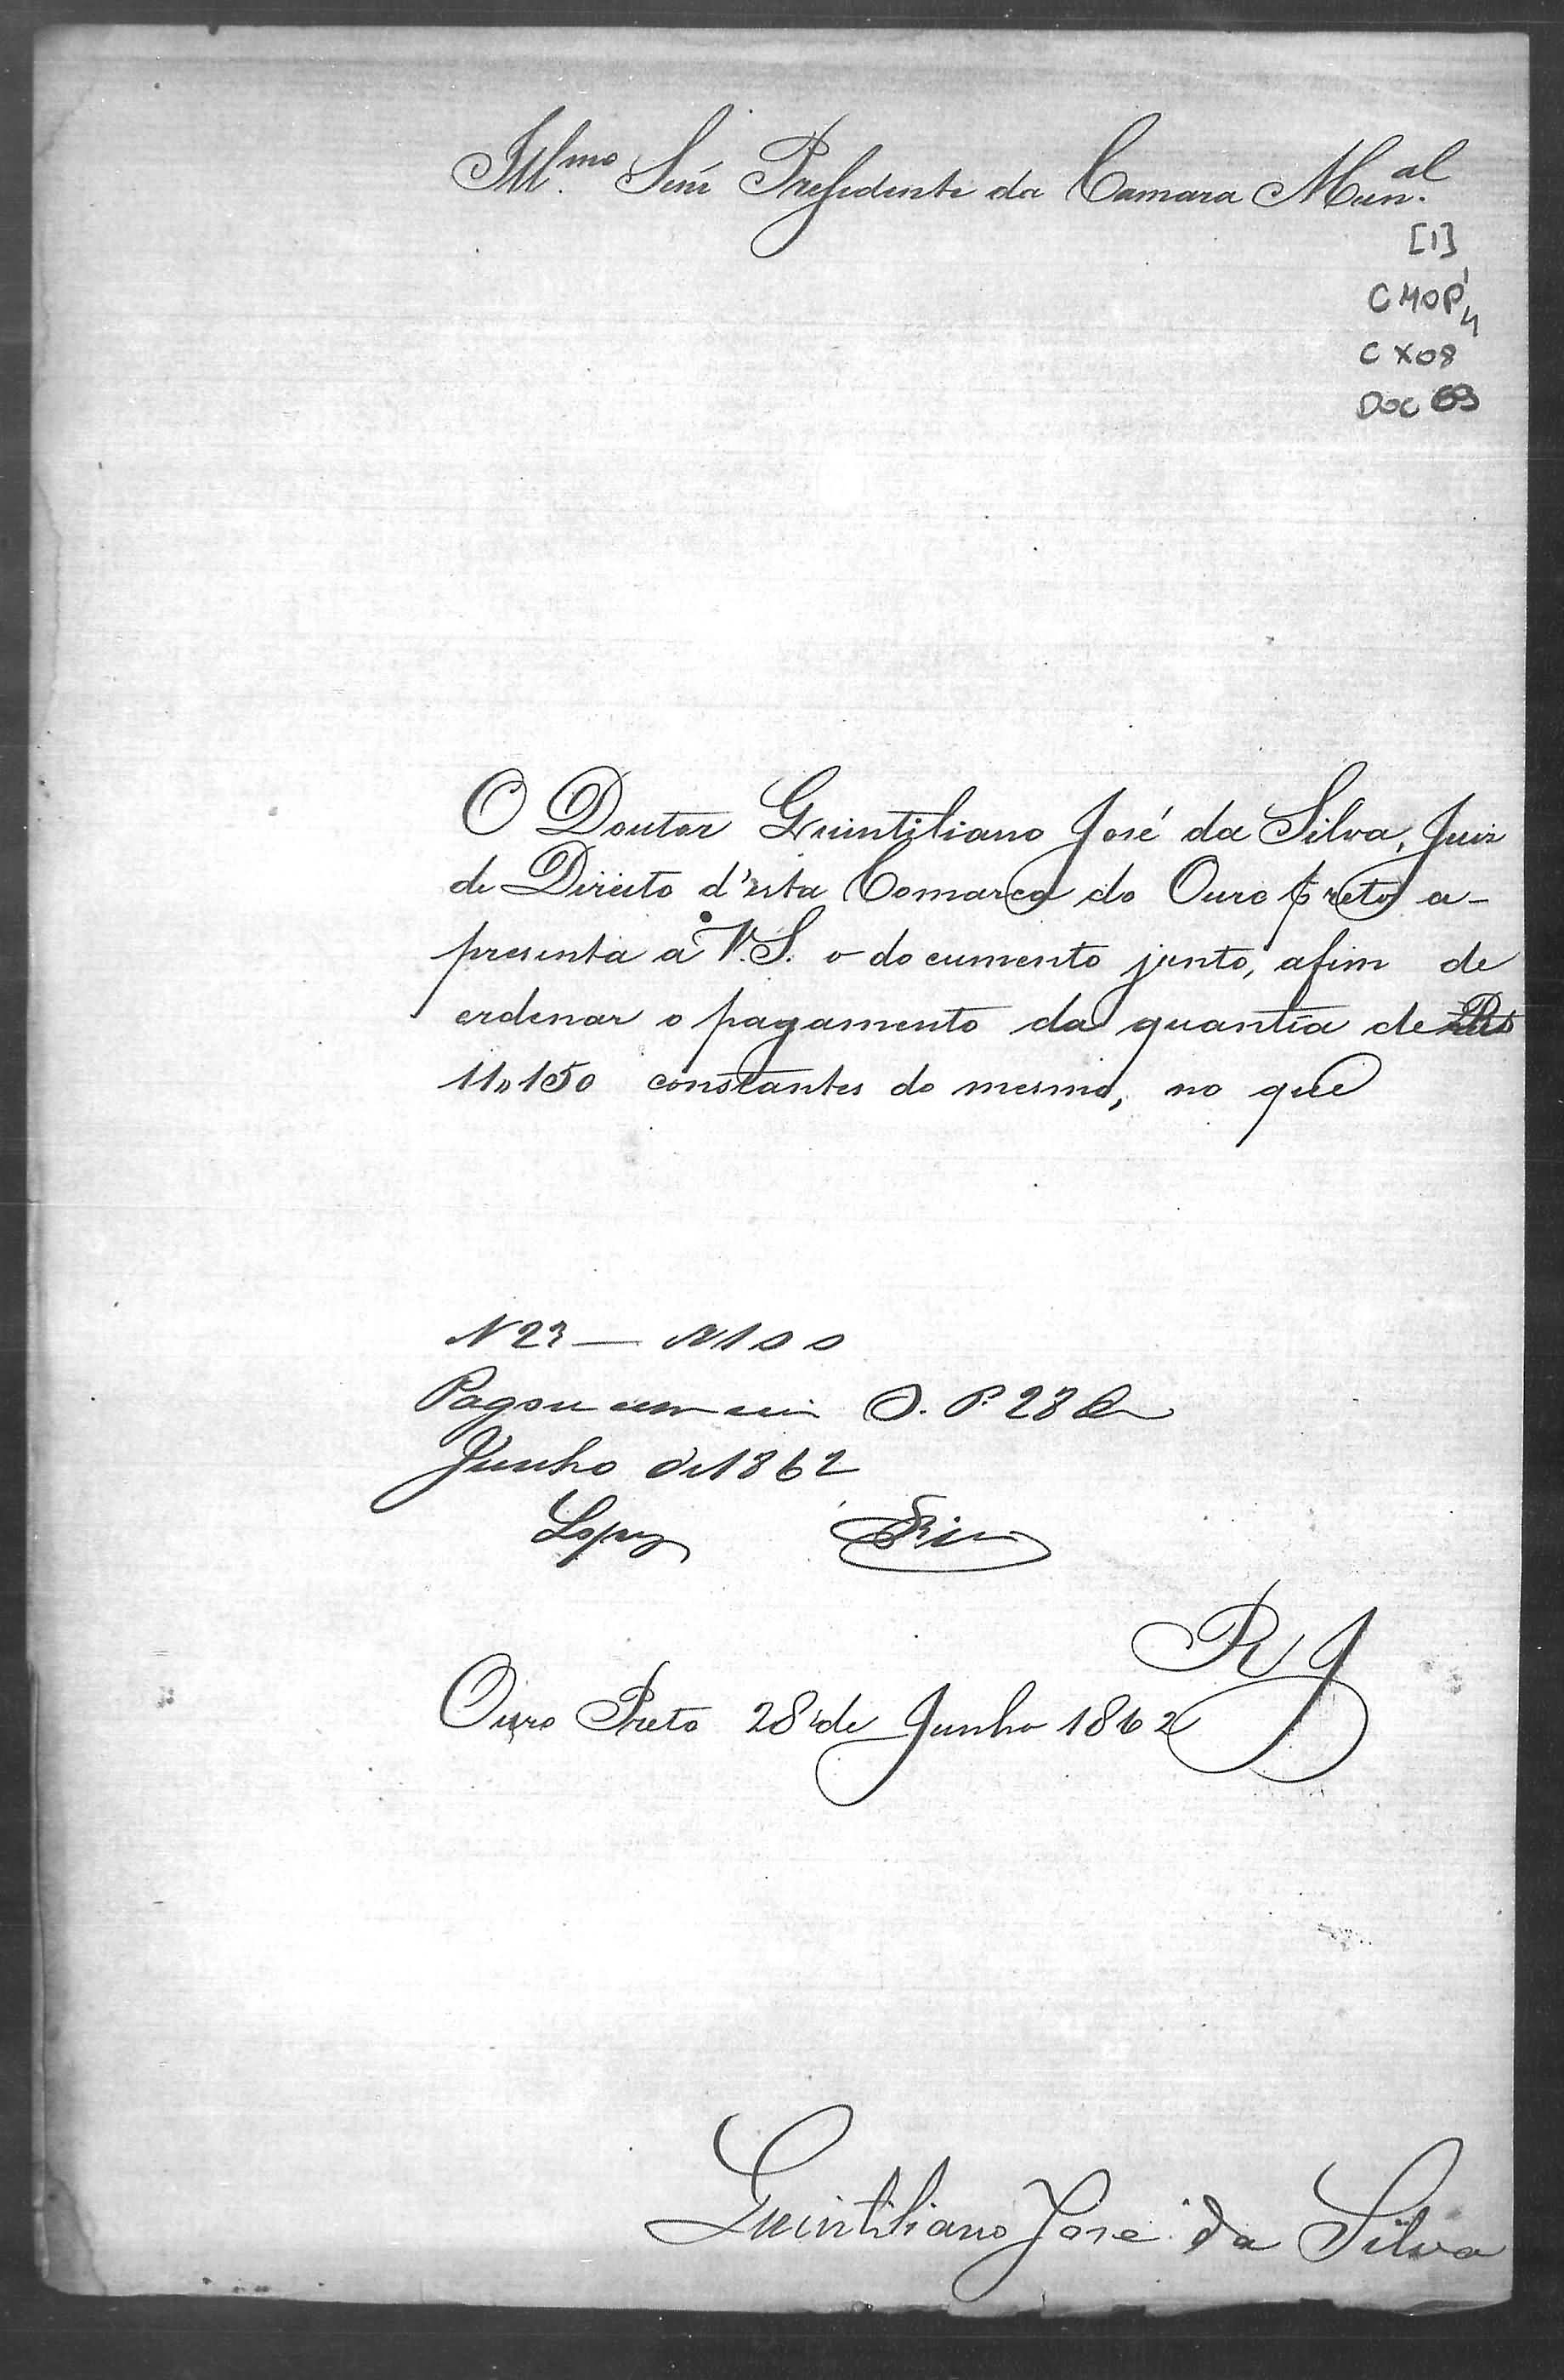 Ill.mo Senr Presidente da Camara Mun.al
[1]
CMOP
CX08
DOC 69
O Doutor Quintiliano José da Silva, Juiz
de Direito d'esta Comarca do Ouro Preto a-
presenta á V.S. o documento junto, afim de
ordenar o pagamento da quantia de Rs
11,,150 constantes do mesmo, no que
N 23 — 100
Pagou cem reis O. P. 28 de
Junho de 1862
Lopes
R J
Ouro Preto 28 de Junho 1862
Quintiliano José da Silva